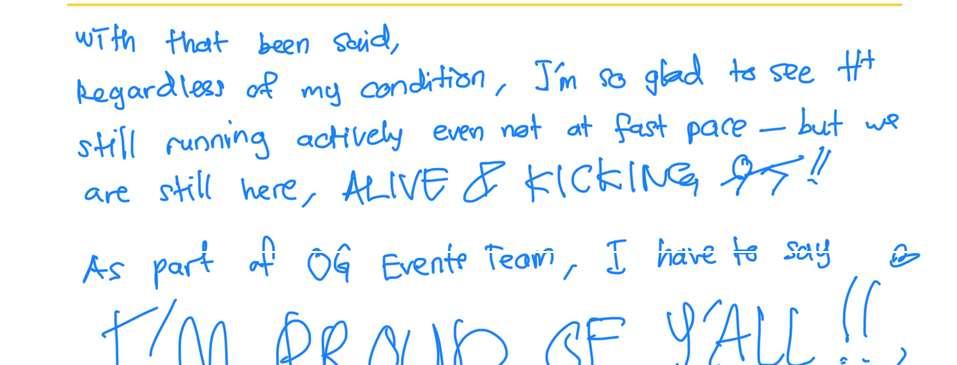 with that been said,
Regardless of my condition, I'm so glad to see H+
still running actively even not at fast pace – but we
are still here, ALIVE & KICKING !!
As part of OG Evente Team, I have to say
I'M PROUD OF Y'ALL !!